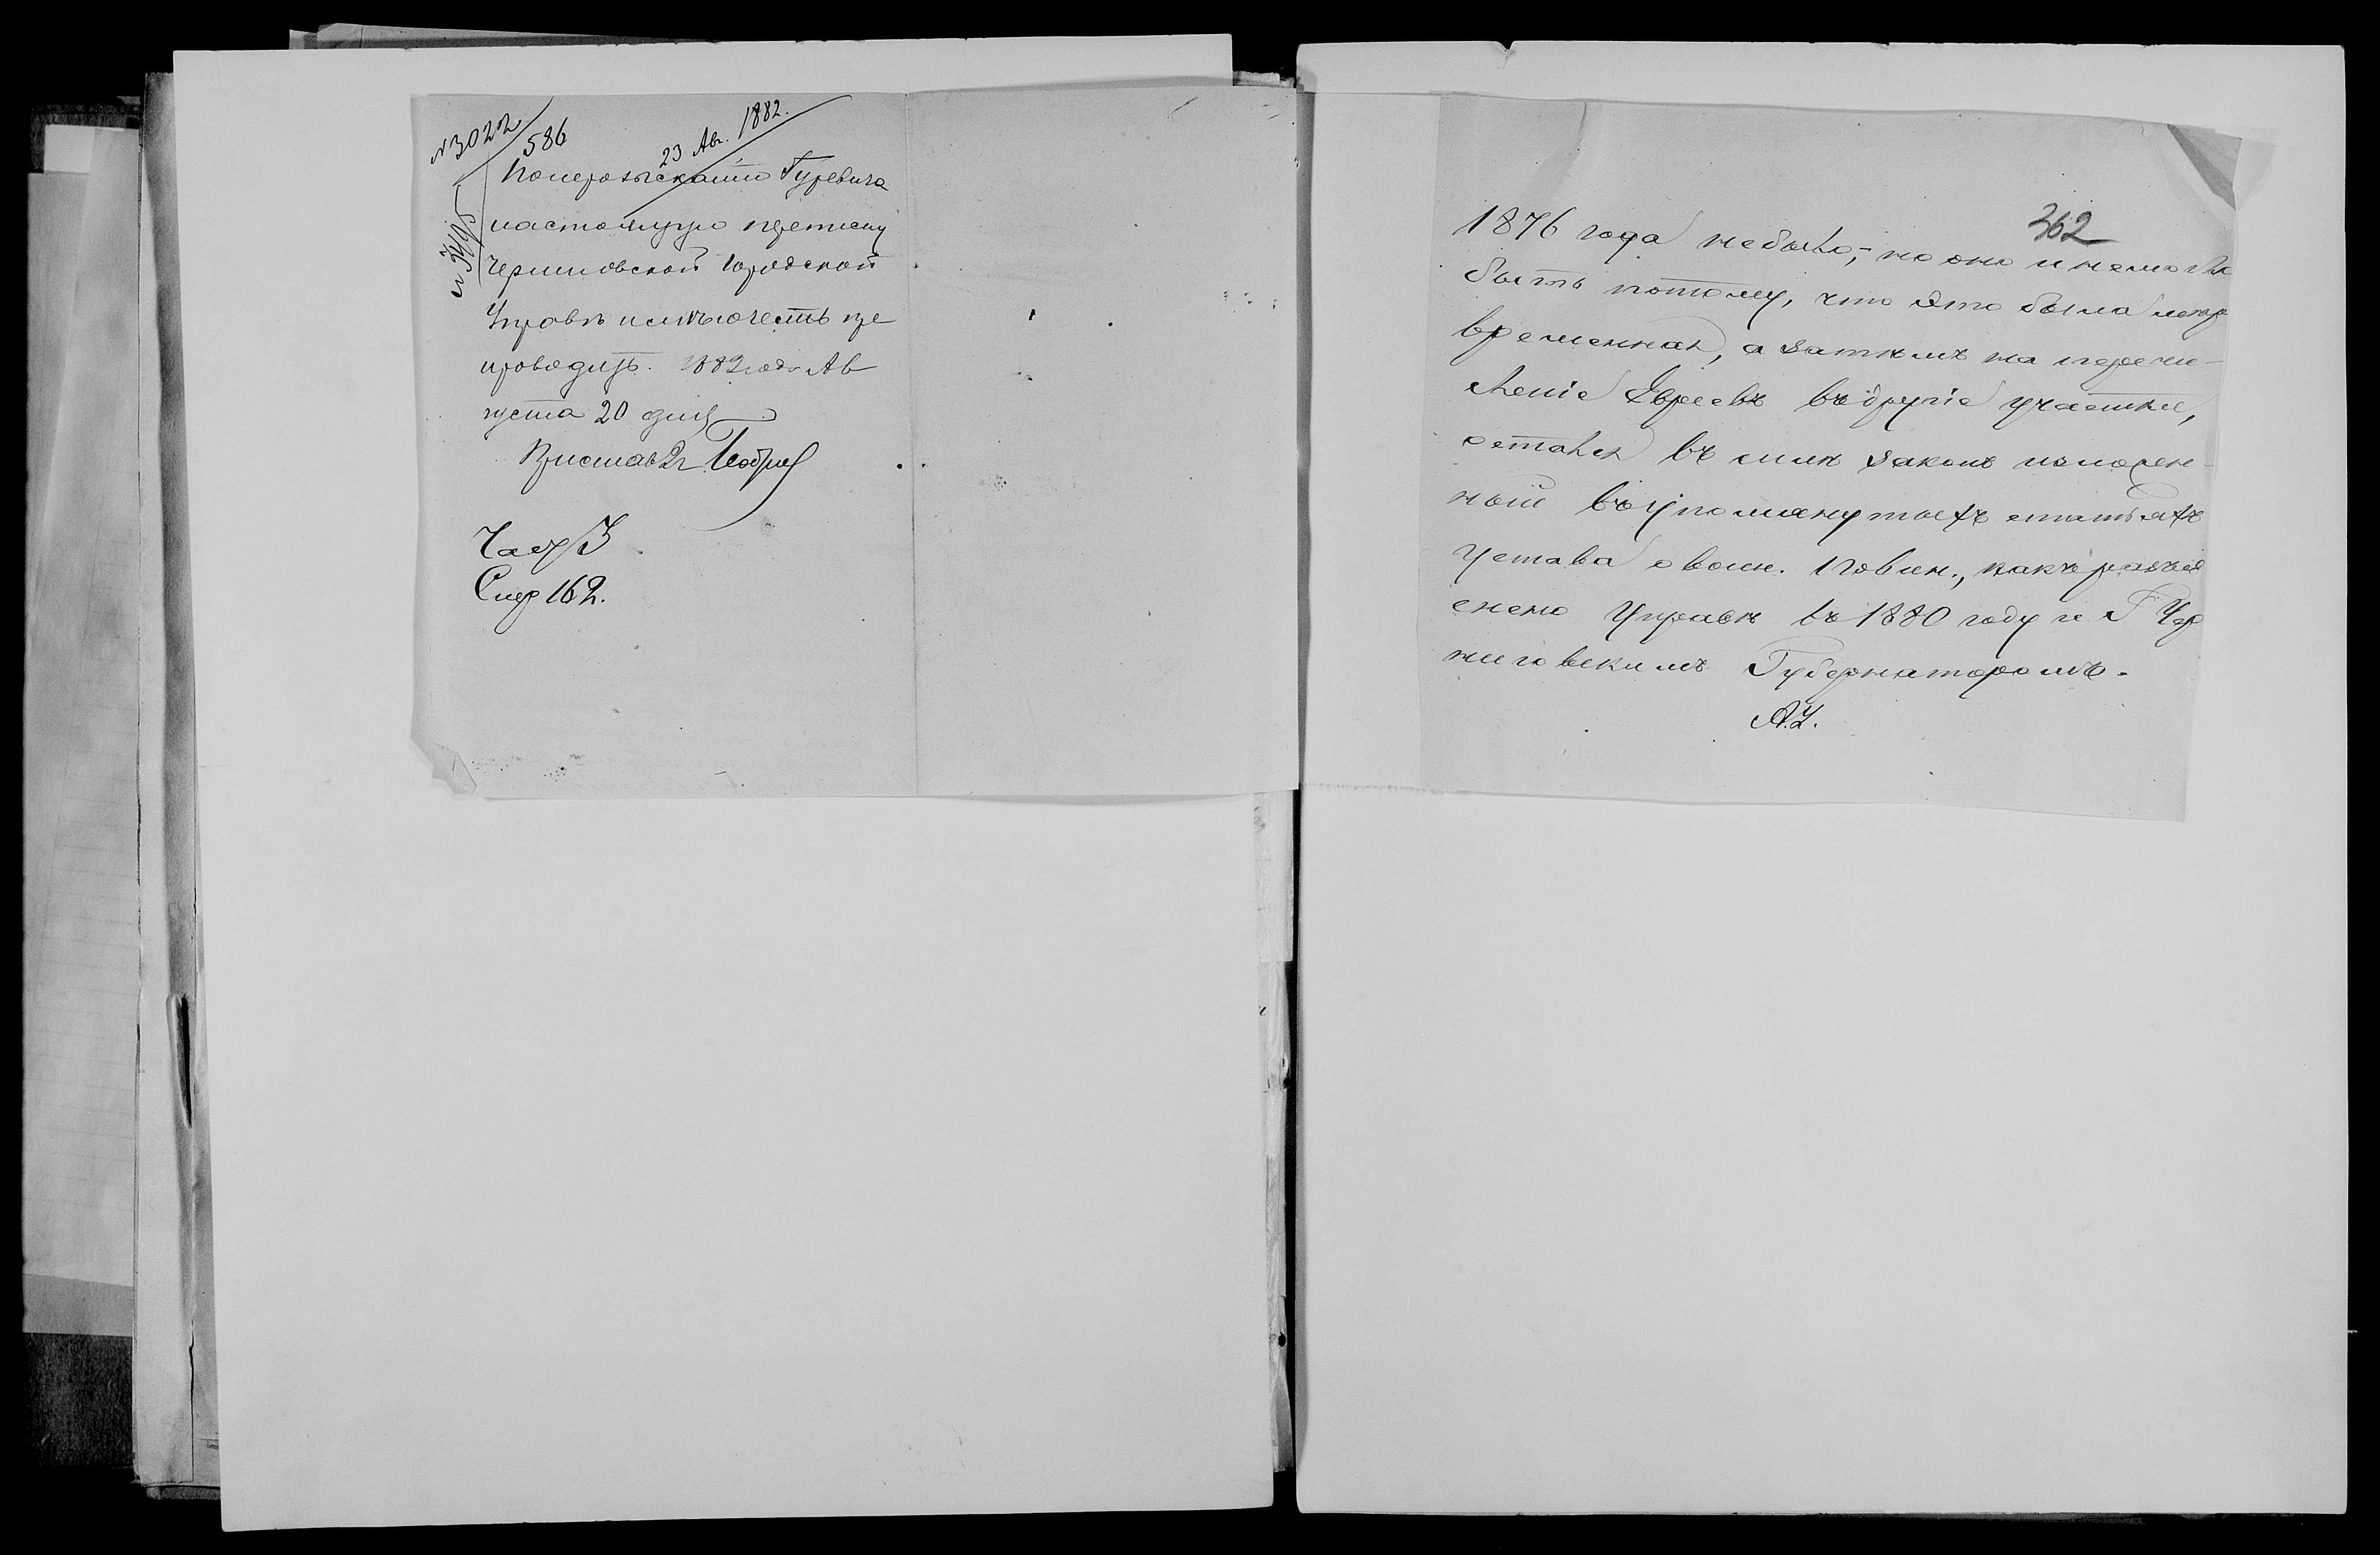 № 3022
586
23 Ав. 1882.
По нерозысканию Гуревича
настоящую переписку
Черниговской Городской
Управѣ имѣю честь пре
проводить. 1882 года Ав
густа 20 дня
Приставъ 2 ч.
Част 3
Слѣд 162.
362
1876 года небыло, – но оно и немогло
быть потому, что это была мѣра
временная, а затѣмъ на перечи-
сленіе Евреевъ въ другіе участки,
остался въ силѣ законъ изложен-
ный въ упомянутыхъ статьяхъ
Устава о воин. повин., какъ разъя
снено Управѣ въ 1880 году и Г Чер
ниговскимъ Губернаторомъ.